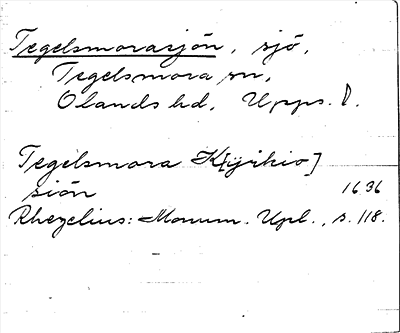 Tegelsmorasjön, sjö,
Tegelsmora sn,
Olands hd, Upps. l.
Tegelsmora K[yrkio]
siön 1636
Rhezelius: Monum. Upl., s. 118.